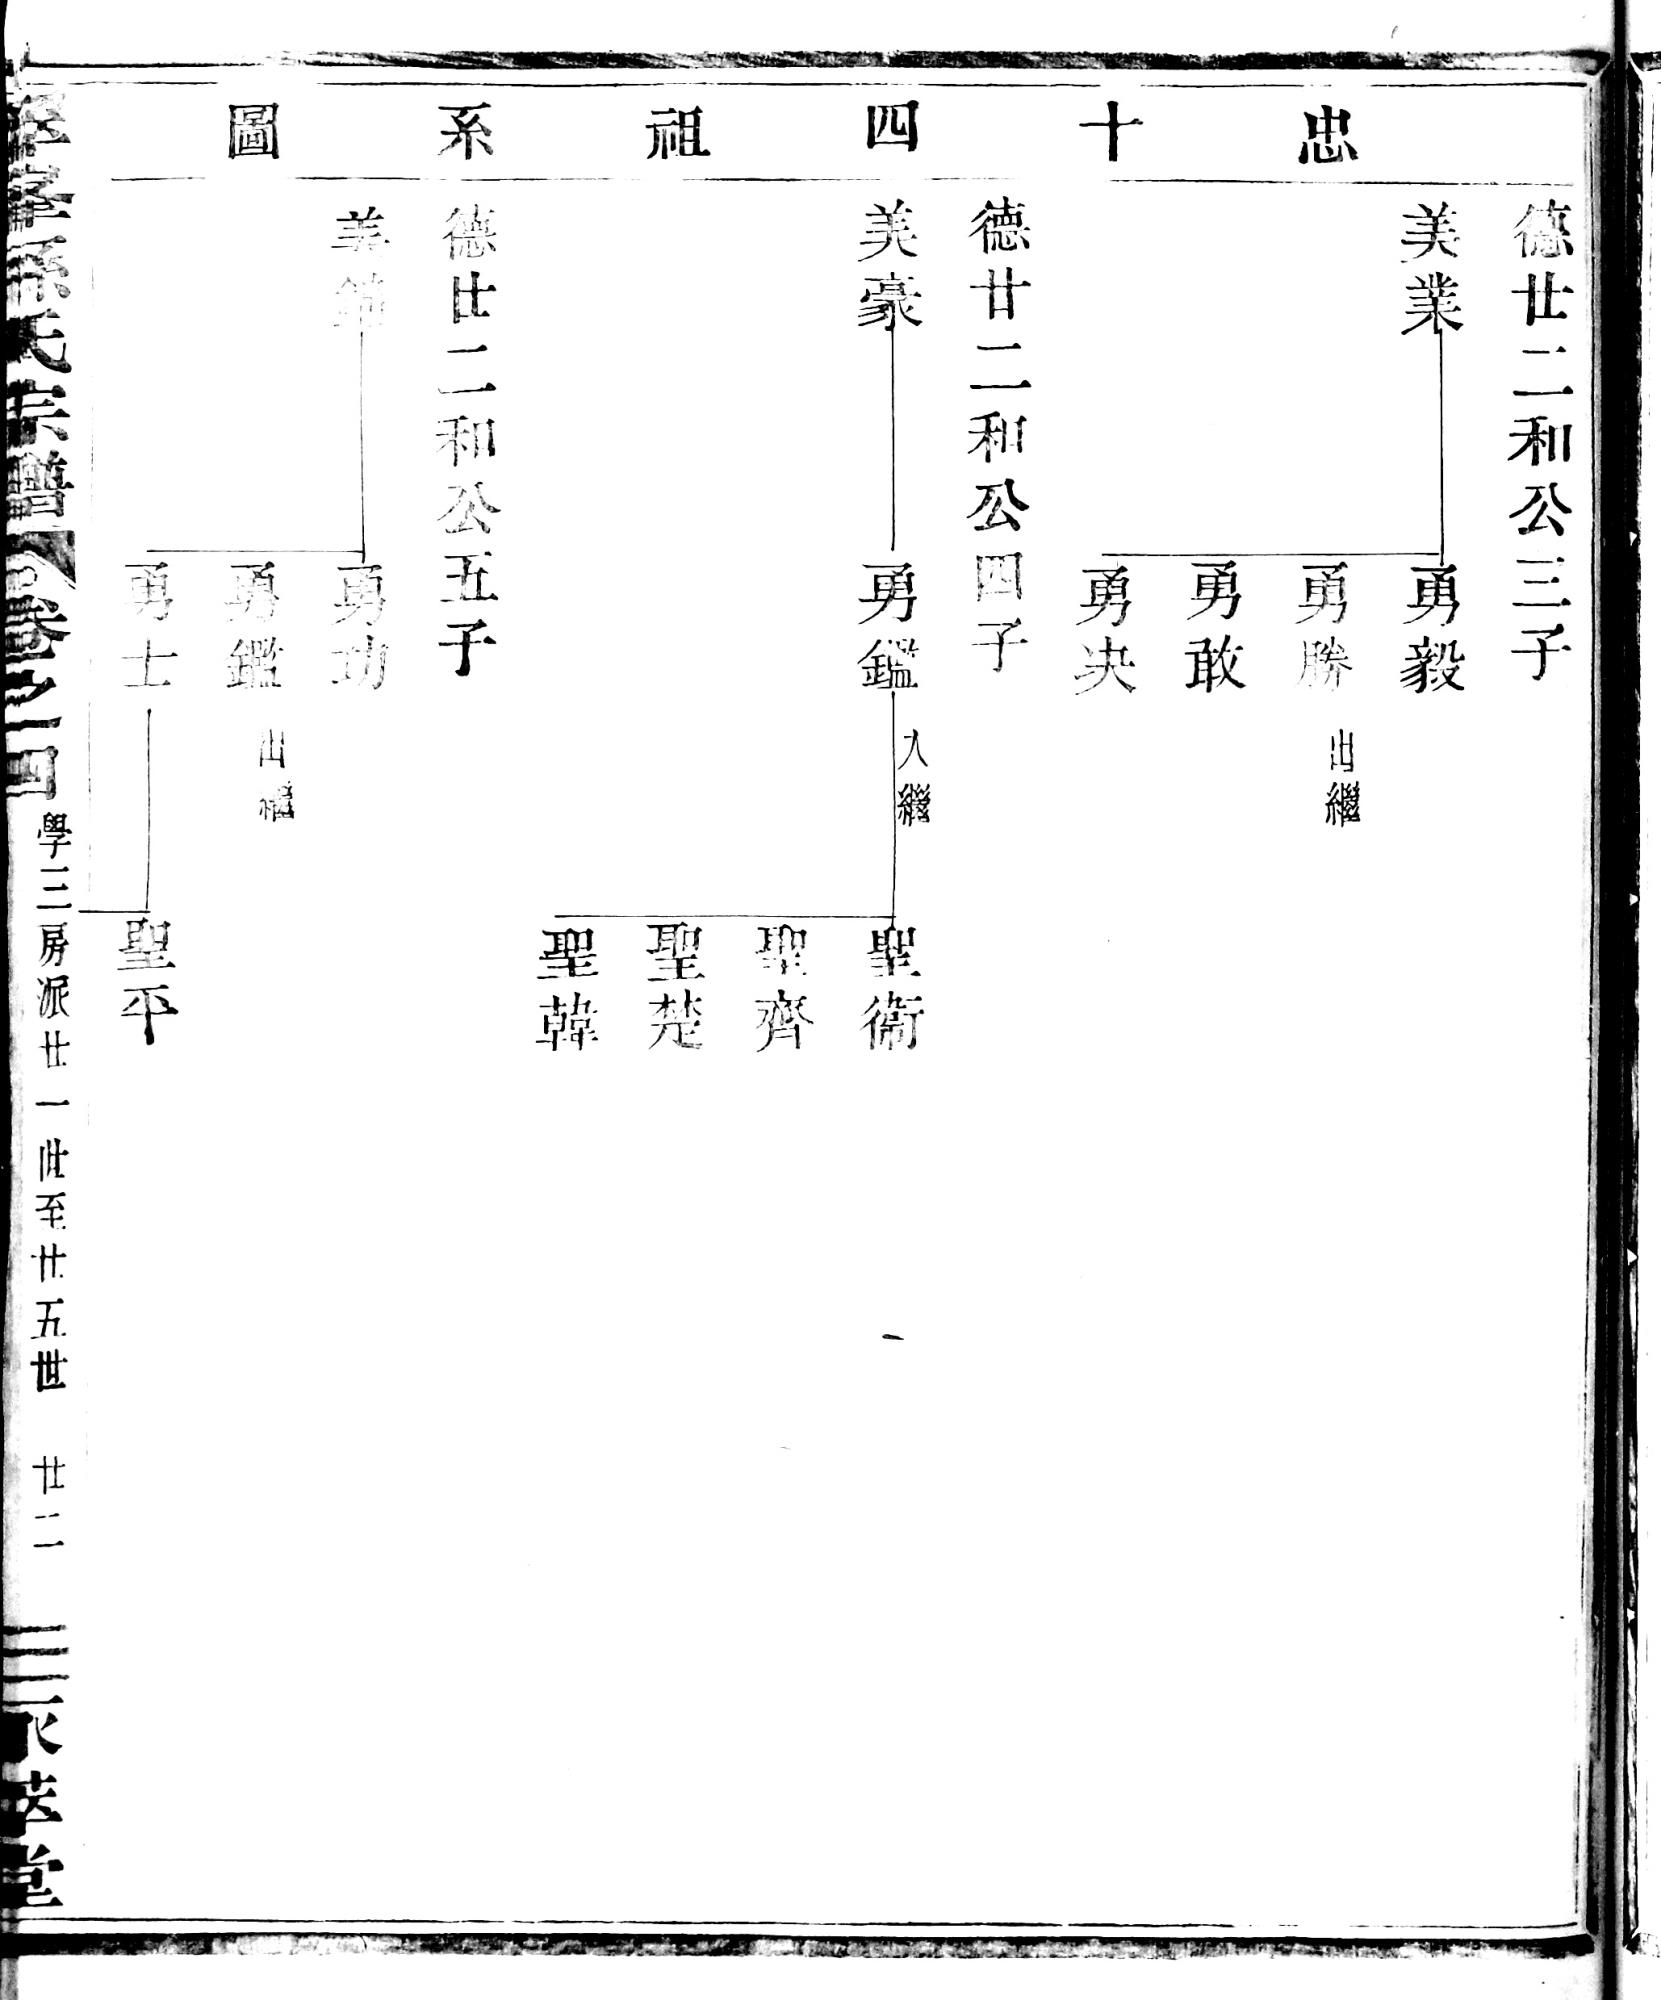 忠十四祖系圖
德廿二和公三子
美業
勇毅
勇勝 出繼
勇敢
勇决
德廿二和公四子
美豪
勇鑑 入繼
聖衞
聖齊
聖楚
聖韓
德廿二和公五子
美
勇功
勇鑑 出繼
勇士
聖平
峯孫氏宗譜 卷之四 學三房派廿一世至廿五世 廿二 堂